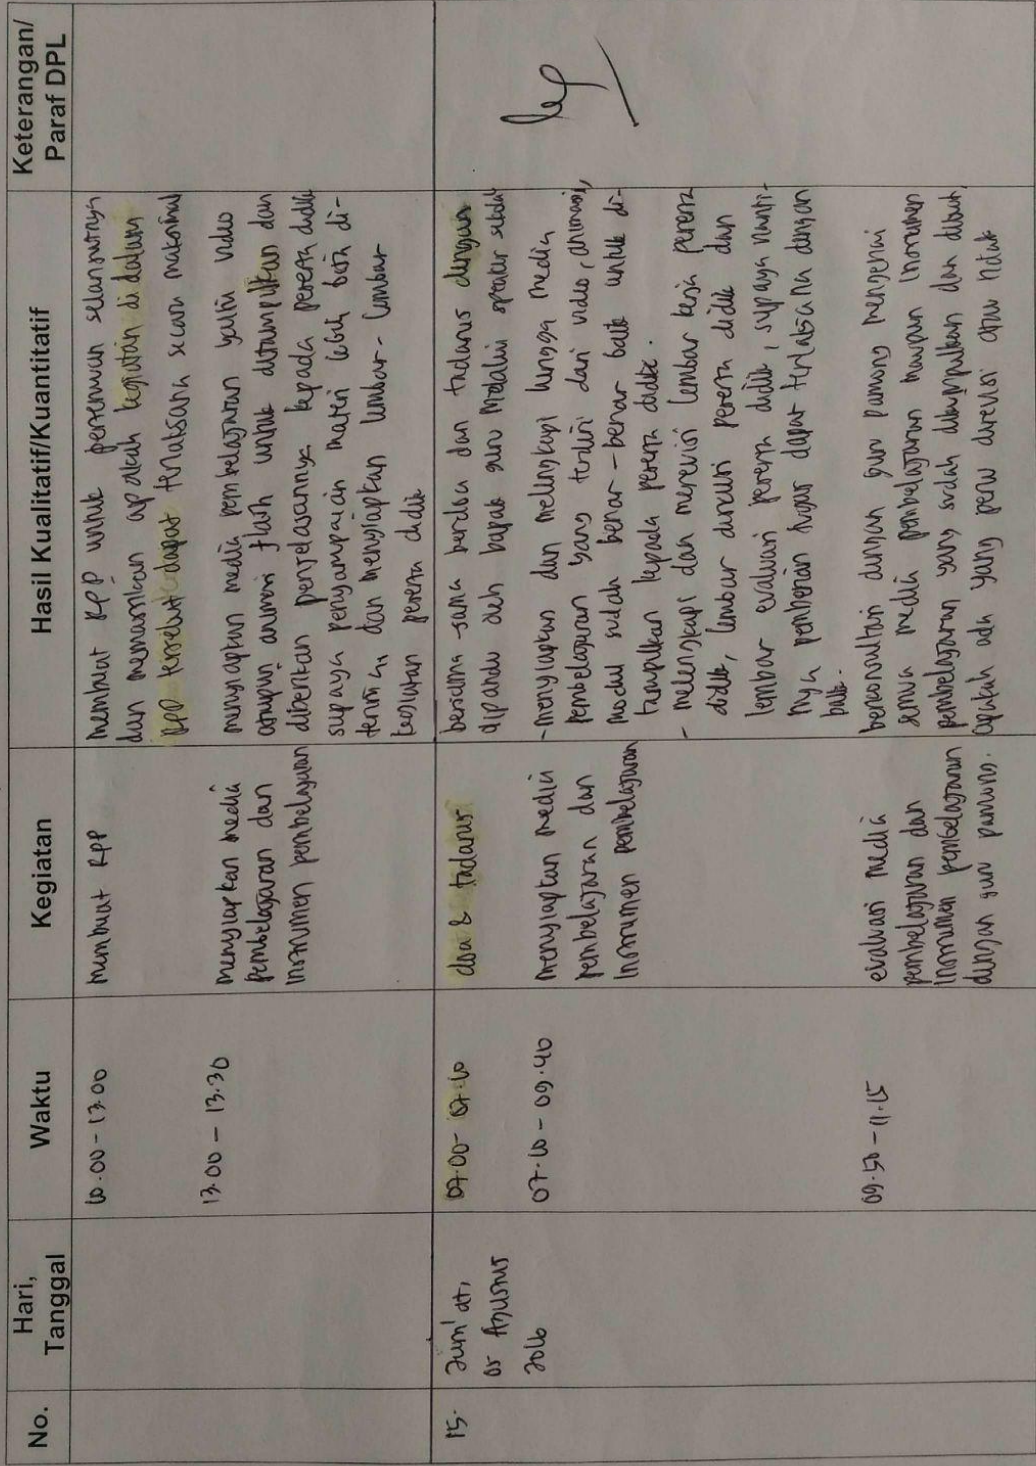 No.
Hari,
Tanggal
Waktu
Kegiatan
Hasil Kualitatif/Kuantitatif
Keterangan/
Paraf DPL
10.00 - 13.00
membuat RPP
membuat RPP untuk pertemuan selanjutnya
dan memastikan apakah kegiatan di dalam
RPP tersebut dapat terlaksana secara maksimal
13.00 - 13.30
menyiapkan media
pembelajaran dan
Instrumen pembelajaran
menyiapkan media pembelajaran yaitu video
ataupun animasi flash untuk ditampilkan dan
diberikan penjelasannya kepada peserta didik
supaya penyampaian materi lebih bisa di-
terima, dan menyiapkan lembar-lembar
kegiatan peserta didik
15.
Jum'at,
05 Agustus
2016
07.00 - 07.10
doa & tadarus
bersama-sama berdoa dan tadarus dengan
dipandu oleh bapak guru melalui speaker sekolah
07.10 - 09.40
menyiapkan media
pembelajaran dan
Instrumen pembelajaran
- menyiapkan dan melengkapi hingga media
pembelajaran yang terdiri dari video, animasi,
modul sudah benar-benar baik untuk di-
tampilkan kepada peserta didik.
- melengkapi dan merevisi lembar kerja peserta
didik, lembar diskusi peserta didik dan
lembar evaluasi peserta didik, supaya nanti-
nya pemberian tugas dapat terlaksana dengan
baik.
09.50 - 11.15
evaluasi media
pembelajaran dan
Instrumen pembelajaran
dengan guru pamong.
berkonsultasi dengan guru pamong mengenai
semua media pembelajaran maupun instrumen
pembelajaran yang sudah dikumpulkan dan dibuat,
apakah ada yang perlu direvisi atau tidak